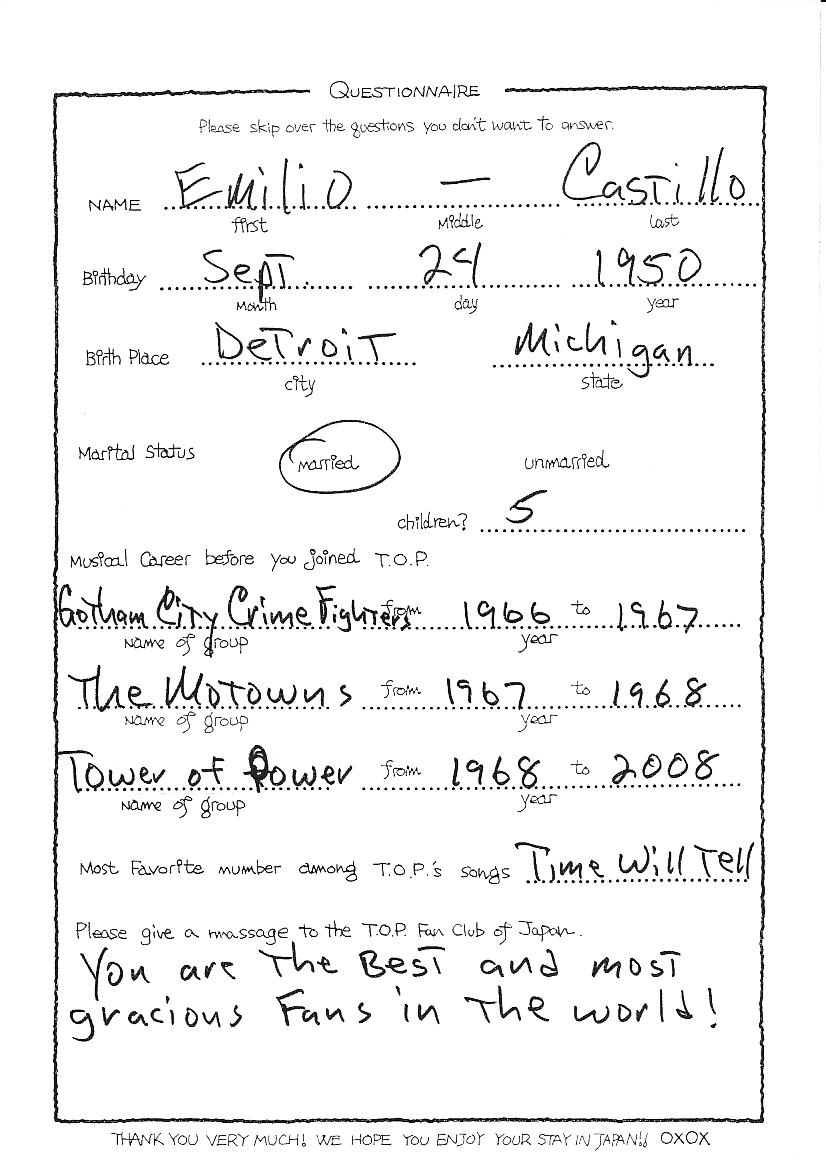 QUESTIONNAIRE
Please skip over the questions you don't want to answer.
NAME Emilio — Castillo
first Middle last
Birthday Sept. 24 1950
Month day year
Birth Place Detroit Michigan
city state
Marital Status married unmarried
children? 5
Musical Career before you joined T.O.P.
Gotham City Crime Fighters from 1966 to 1967
name of group year
The Motowns from 1967 to 1968
name of group year
Tower of Power from 1968 to 2008
name of group year
Most Favorite number among T.O.P.'s songs Time Will Tell
Please give a massage to the T.O.P. Fan Club of Japan.
You are The Best and most
gracious Fans in the world!
THANK YOU VERY MUCH! WE HOPE YOU ENJOY YOUR STAY IN JAPAN!! OXOX